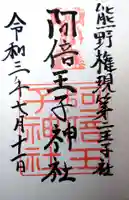 熊野権現第二王子社
阿倍王子神社
令和三年七月十二日
阿倍王
子神社